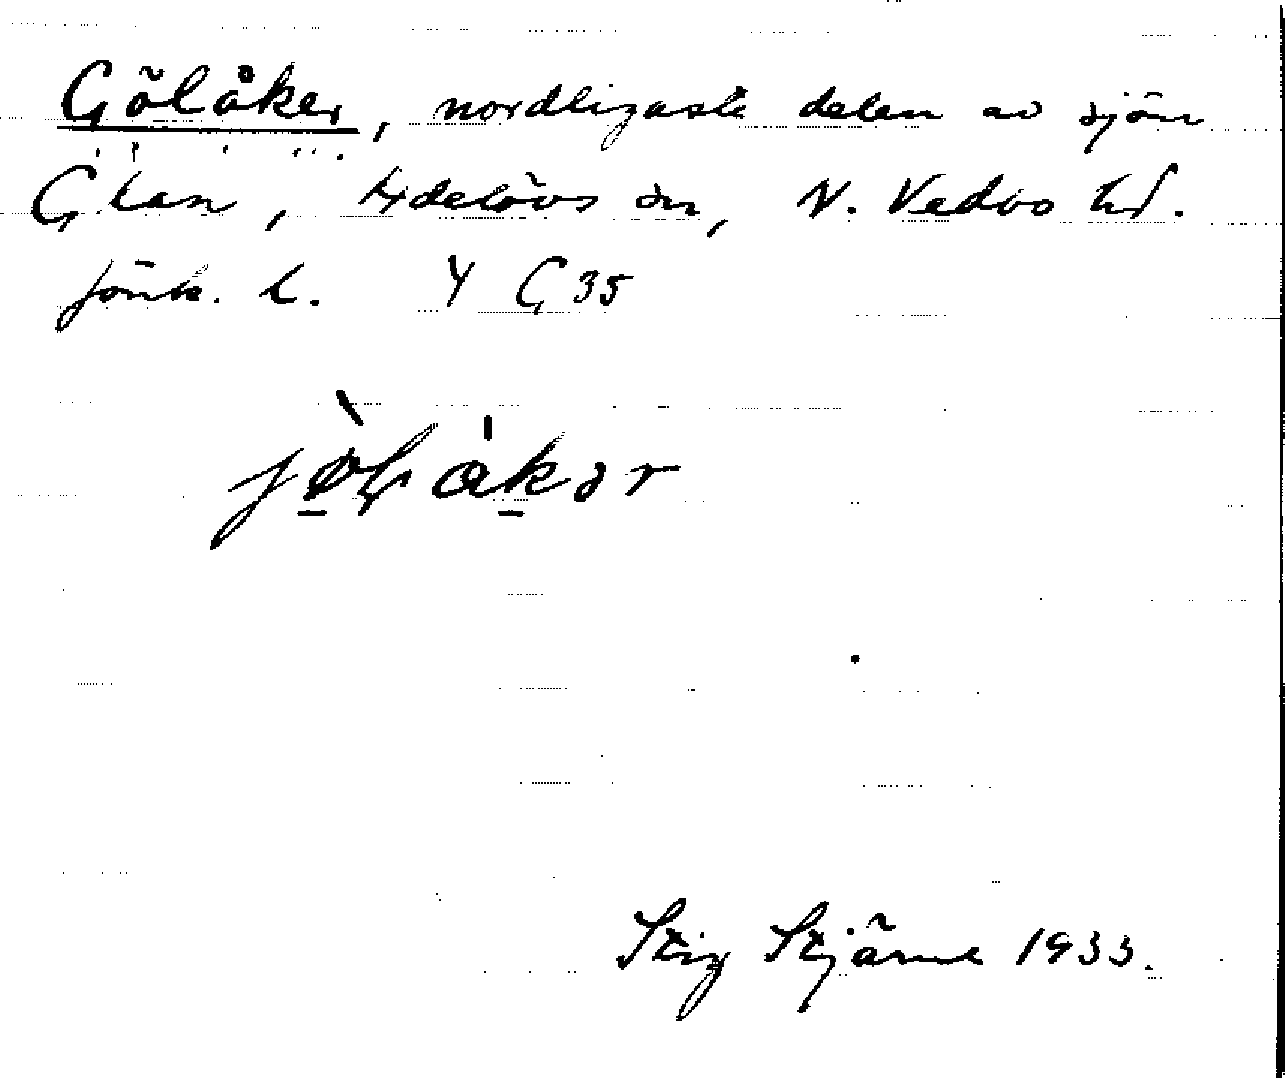 Gölåker, nordligaste delen av sjön
Glan, Adelövs sn, N. Vedbo hd.
Jönk. l. Y G 35
Stig Stjärne 1933.